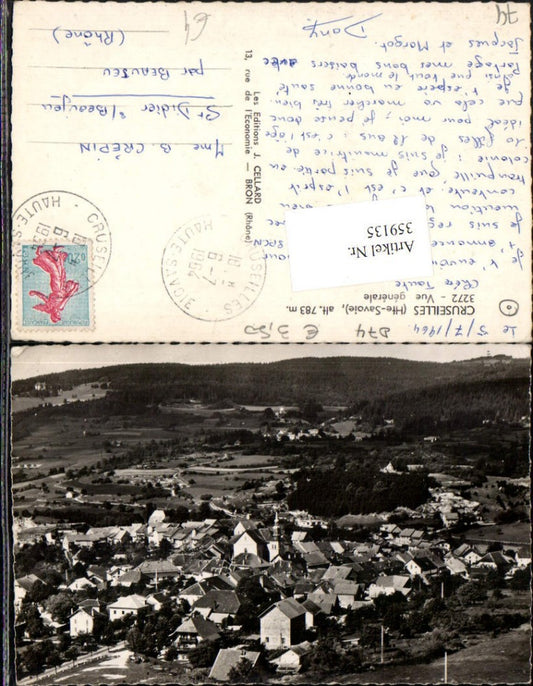 CRUSEILLES (Hte-Savoie), alt. 783 m.
3272 - Vue générale
le 5/7/1964
Chère Tante
Je t'envoie
t'annoncer
suis
contente, et c'est l'esprit
tranquille que je suis partie en
colonie : je suis monitrice de
10 filles de 12 ans : c'est l'âge
idéal pour moi ; je pense donc
que cela va marcher très bien
Je t'espère en bonne santé,
ainsi que tout le monde.
Partage mes bons baisers avec
Jacques et Margot.
Dany
Les Editions J. CELLARD
13, rue de l'Economie — BRON (Rhône)
Mme B. CRÉPIN
St Didier s/Beaujeu
par BEAUJEU
(Rhône)
CRUSEILLES
HAUTE-SAVOIE
CRUSEILLES
18H
6-7
1964
HAUTE SAVOIE
0,20
Artikel Nr.
359135
D74
€ 3,50
74